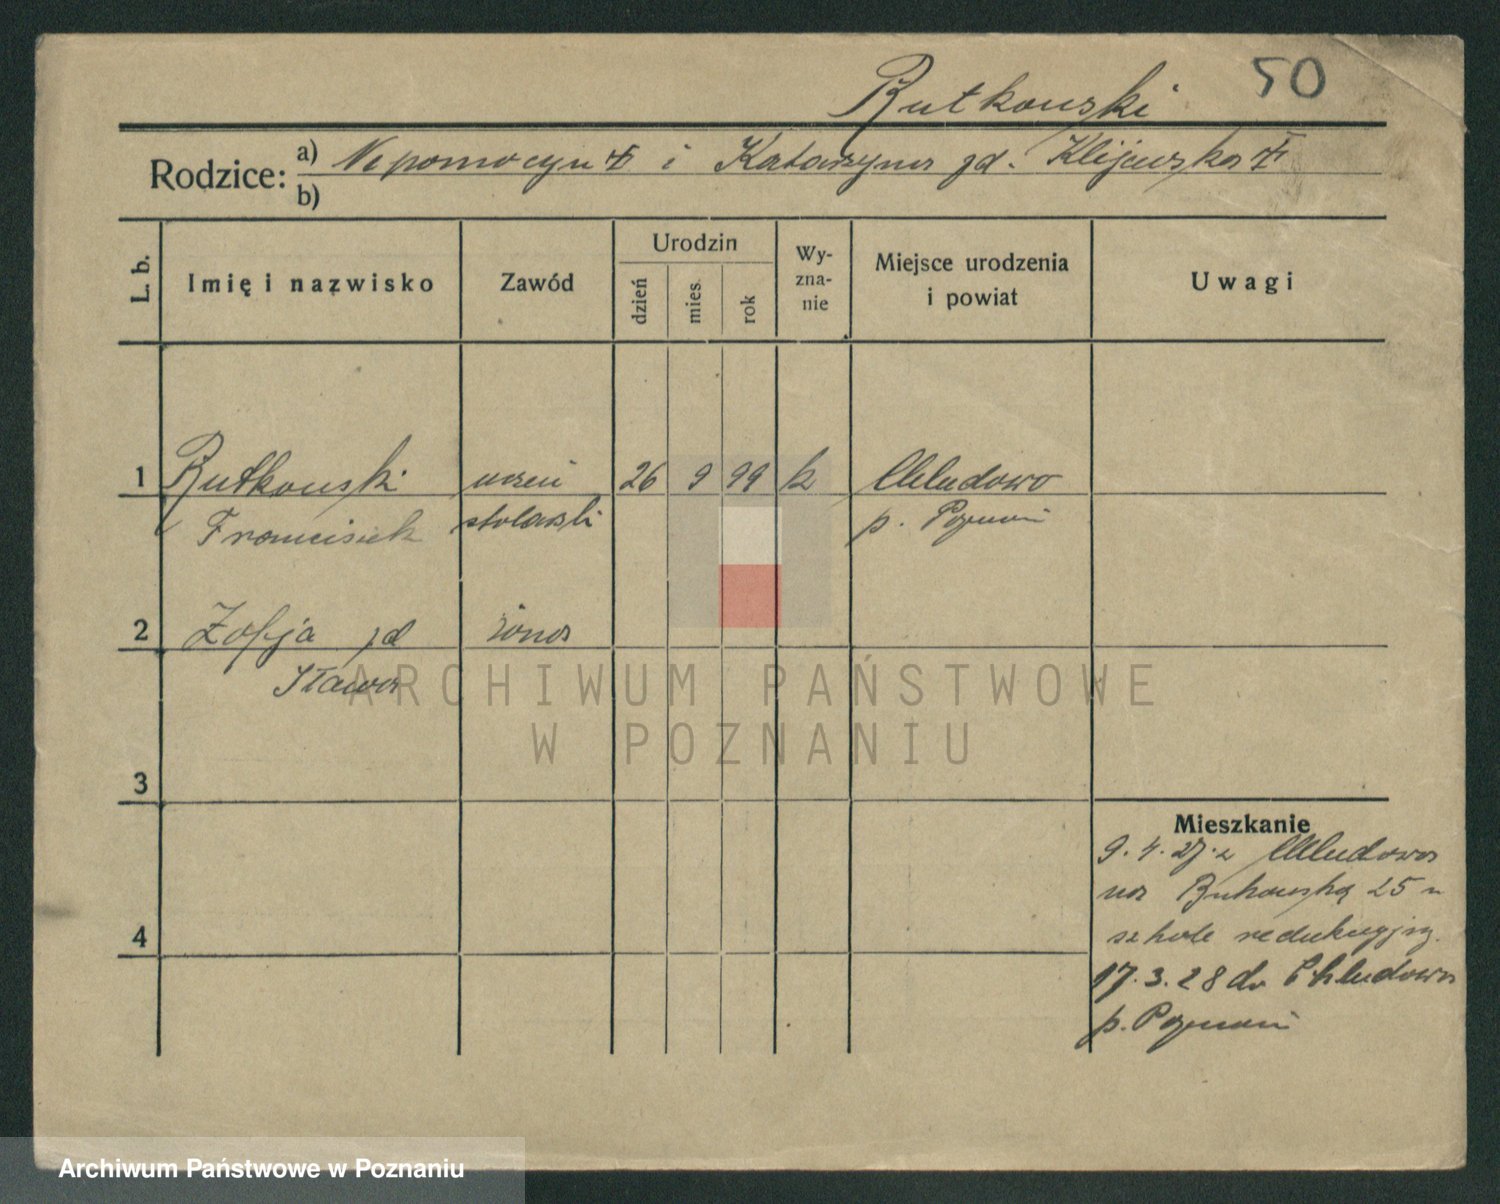 Rutkowski 50
Rodzice: a) Nepomocyn ✝ i Katarzyna zd. Klijewska ✝
b)
L. b. Imię i nazwisko Zawód Urodzin dzień mies. rok Wyznanie Miejsce urodzenia i powiat Uwagi
1 Rutkowski uczeń 26 9 99 k Chludowo
Franciszek stolarski p. Poznań
2 Zofja zd żona
Iława
ARCHIWUM PAŃSTWOWE
W POZNANIU
3
Mieszkanie
9.4.27. z Chludowa
na Bukowską 25 w
szkole redukcyjną.
4
17.3.28 do Chludowa
p. Poznań
Archiwum Państwowe w Poznaniu